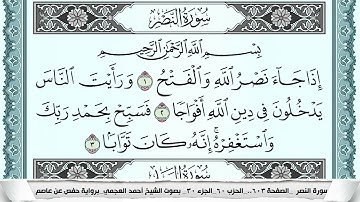 سُورَةُ النَّصْرِ
بِسْمِ اللَّهِ الرَّحْمَٰنِ الرَّحِيمِ
إِذَا جَاءَ نَصْرُ اللَّهِ وَالْفَتْحُ ١ وَرَأَيْتَ النَّاسَ
يَدْخُلُونَ فِي دِينِ اللَّهِ أَفْوَاجًا ٢ فَسَبِّحْ بِحَمْدِ رَبِّكَ
وَاسْتَغْفِرْهُ إِنَّهُ كَانَ تَوَّابًا ٣
سورة النصر _الصفحة ٦٠٣_ الحزب ٦٠_الجزء ٣٠_ بصوت الشيخ أحمد العجمي_ برواية حفص عن عاصم